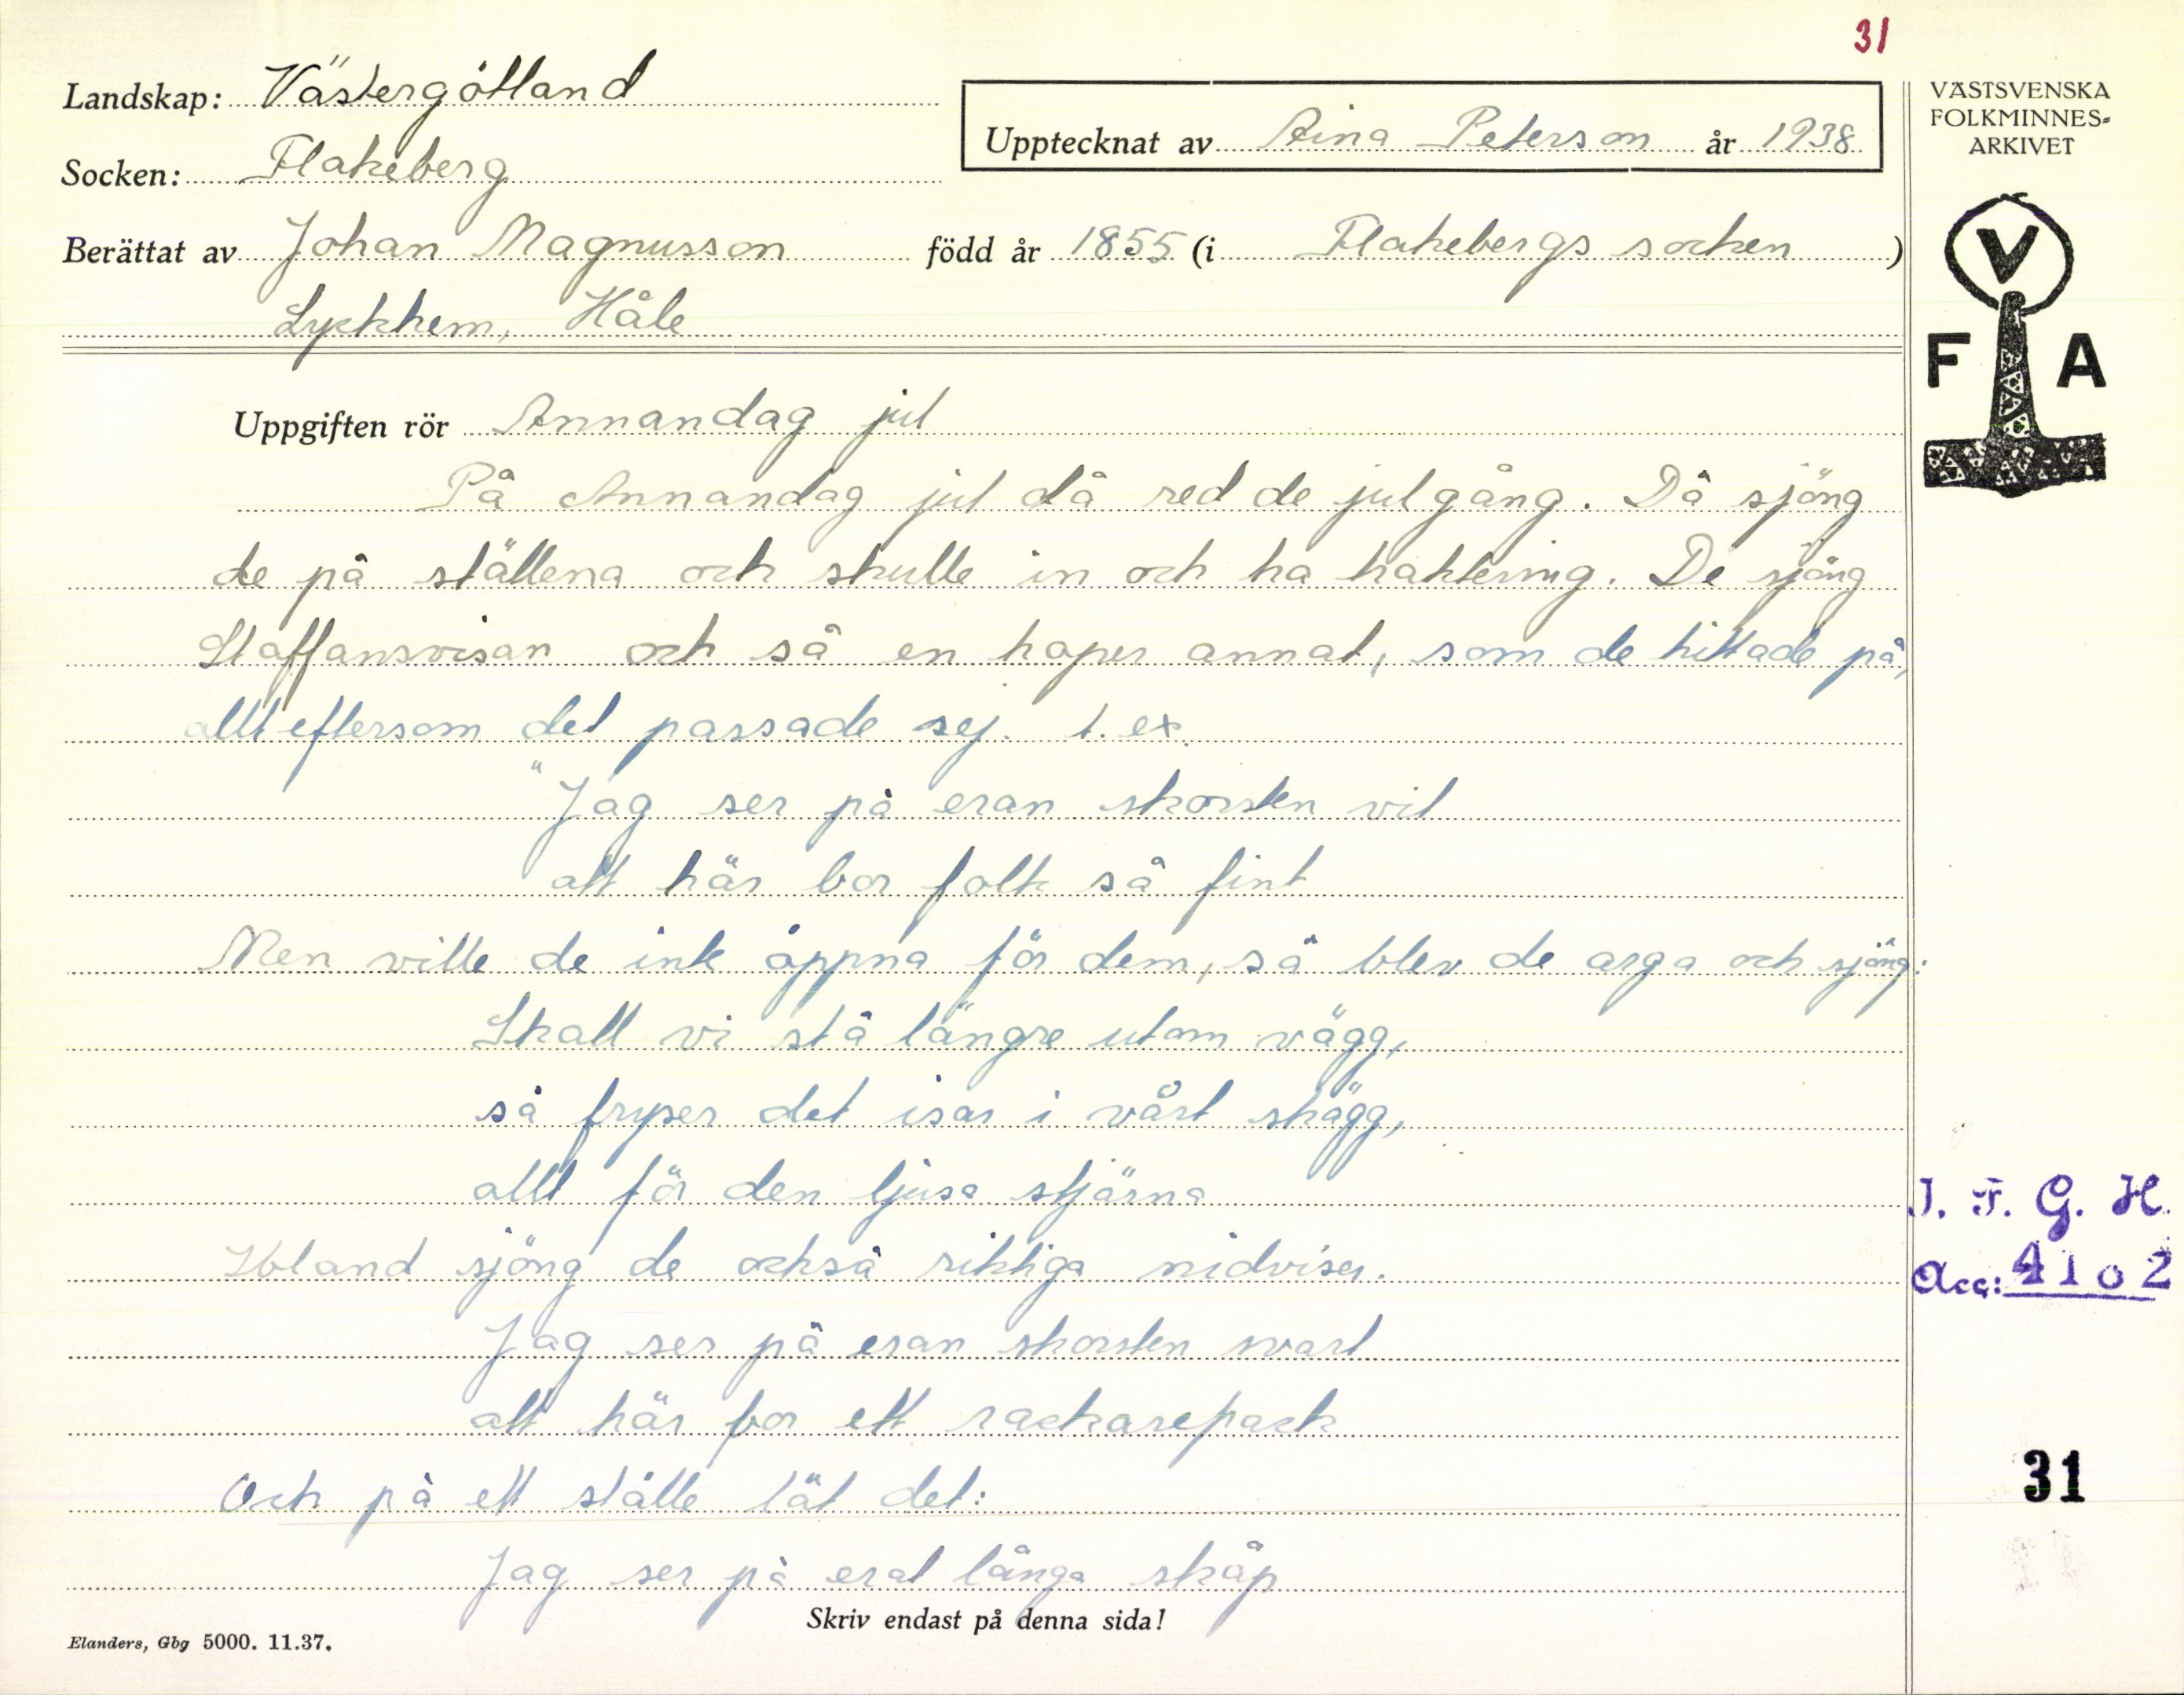 31
Landskap: Västergötland
VÄSTSVENSKA
FOLKMINNES-
ARKIVET
Upptecknat av Aina Peterson år 1938
Socken: Flakeberg
Berättat av Johan Magnusson född år 1855 (i Flakebergs socken)
Lyckhem, Håle
V
F A
Uppgiften rör Annandag jul
På Annandag jul då red de julgång. Då sjöng
de på ställena och skulle in och ha traktering. De sjöng
Staffansvisan och så en hoper annat, som de hittade på,
allt eftersom det passade sej. t. ex.
"Jag ser på eran skorsten vit
att här bor folk så fint
Men ville de inte öppna för dem, så blev de arga och sjöng:
Skall vi stå längre utom vägg,
så fryser det isar i vårt skägg,
allt för den ljusa stjärna
Ibland sjöng de också riktiga nidvisor.
Jag ser på eran skorsten svart
att här bor ett rackarepack
Och på ett ställe lät det:
Jag ser på erat långa skåp
I. F. G. H.
Acc: 4102
31
Skriv endast på denna sida!
Elanders, Gbg 5000. 11.37.